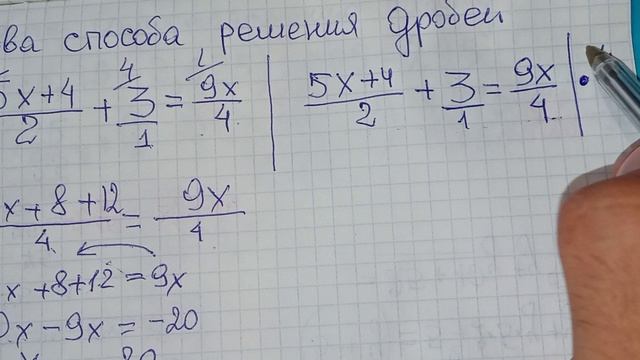 ва способа решения дробей
5x+4/2 + 3/1 = 9x/4 | 5x+4/2 + 3/1 = 9x/4 | •
x+8+12/4 = 9x/4
x+8+12=9x
x-9x=-20